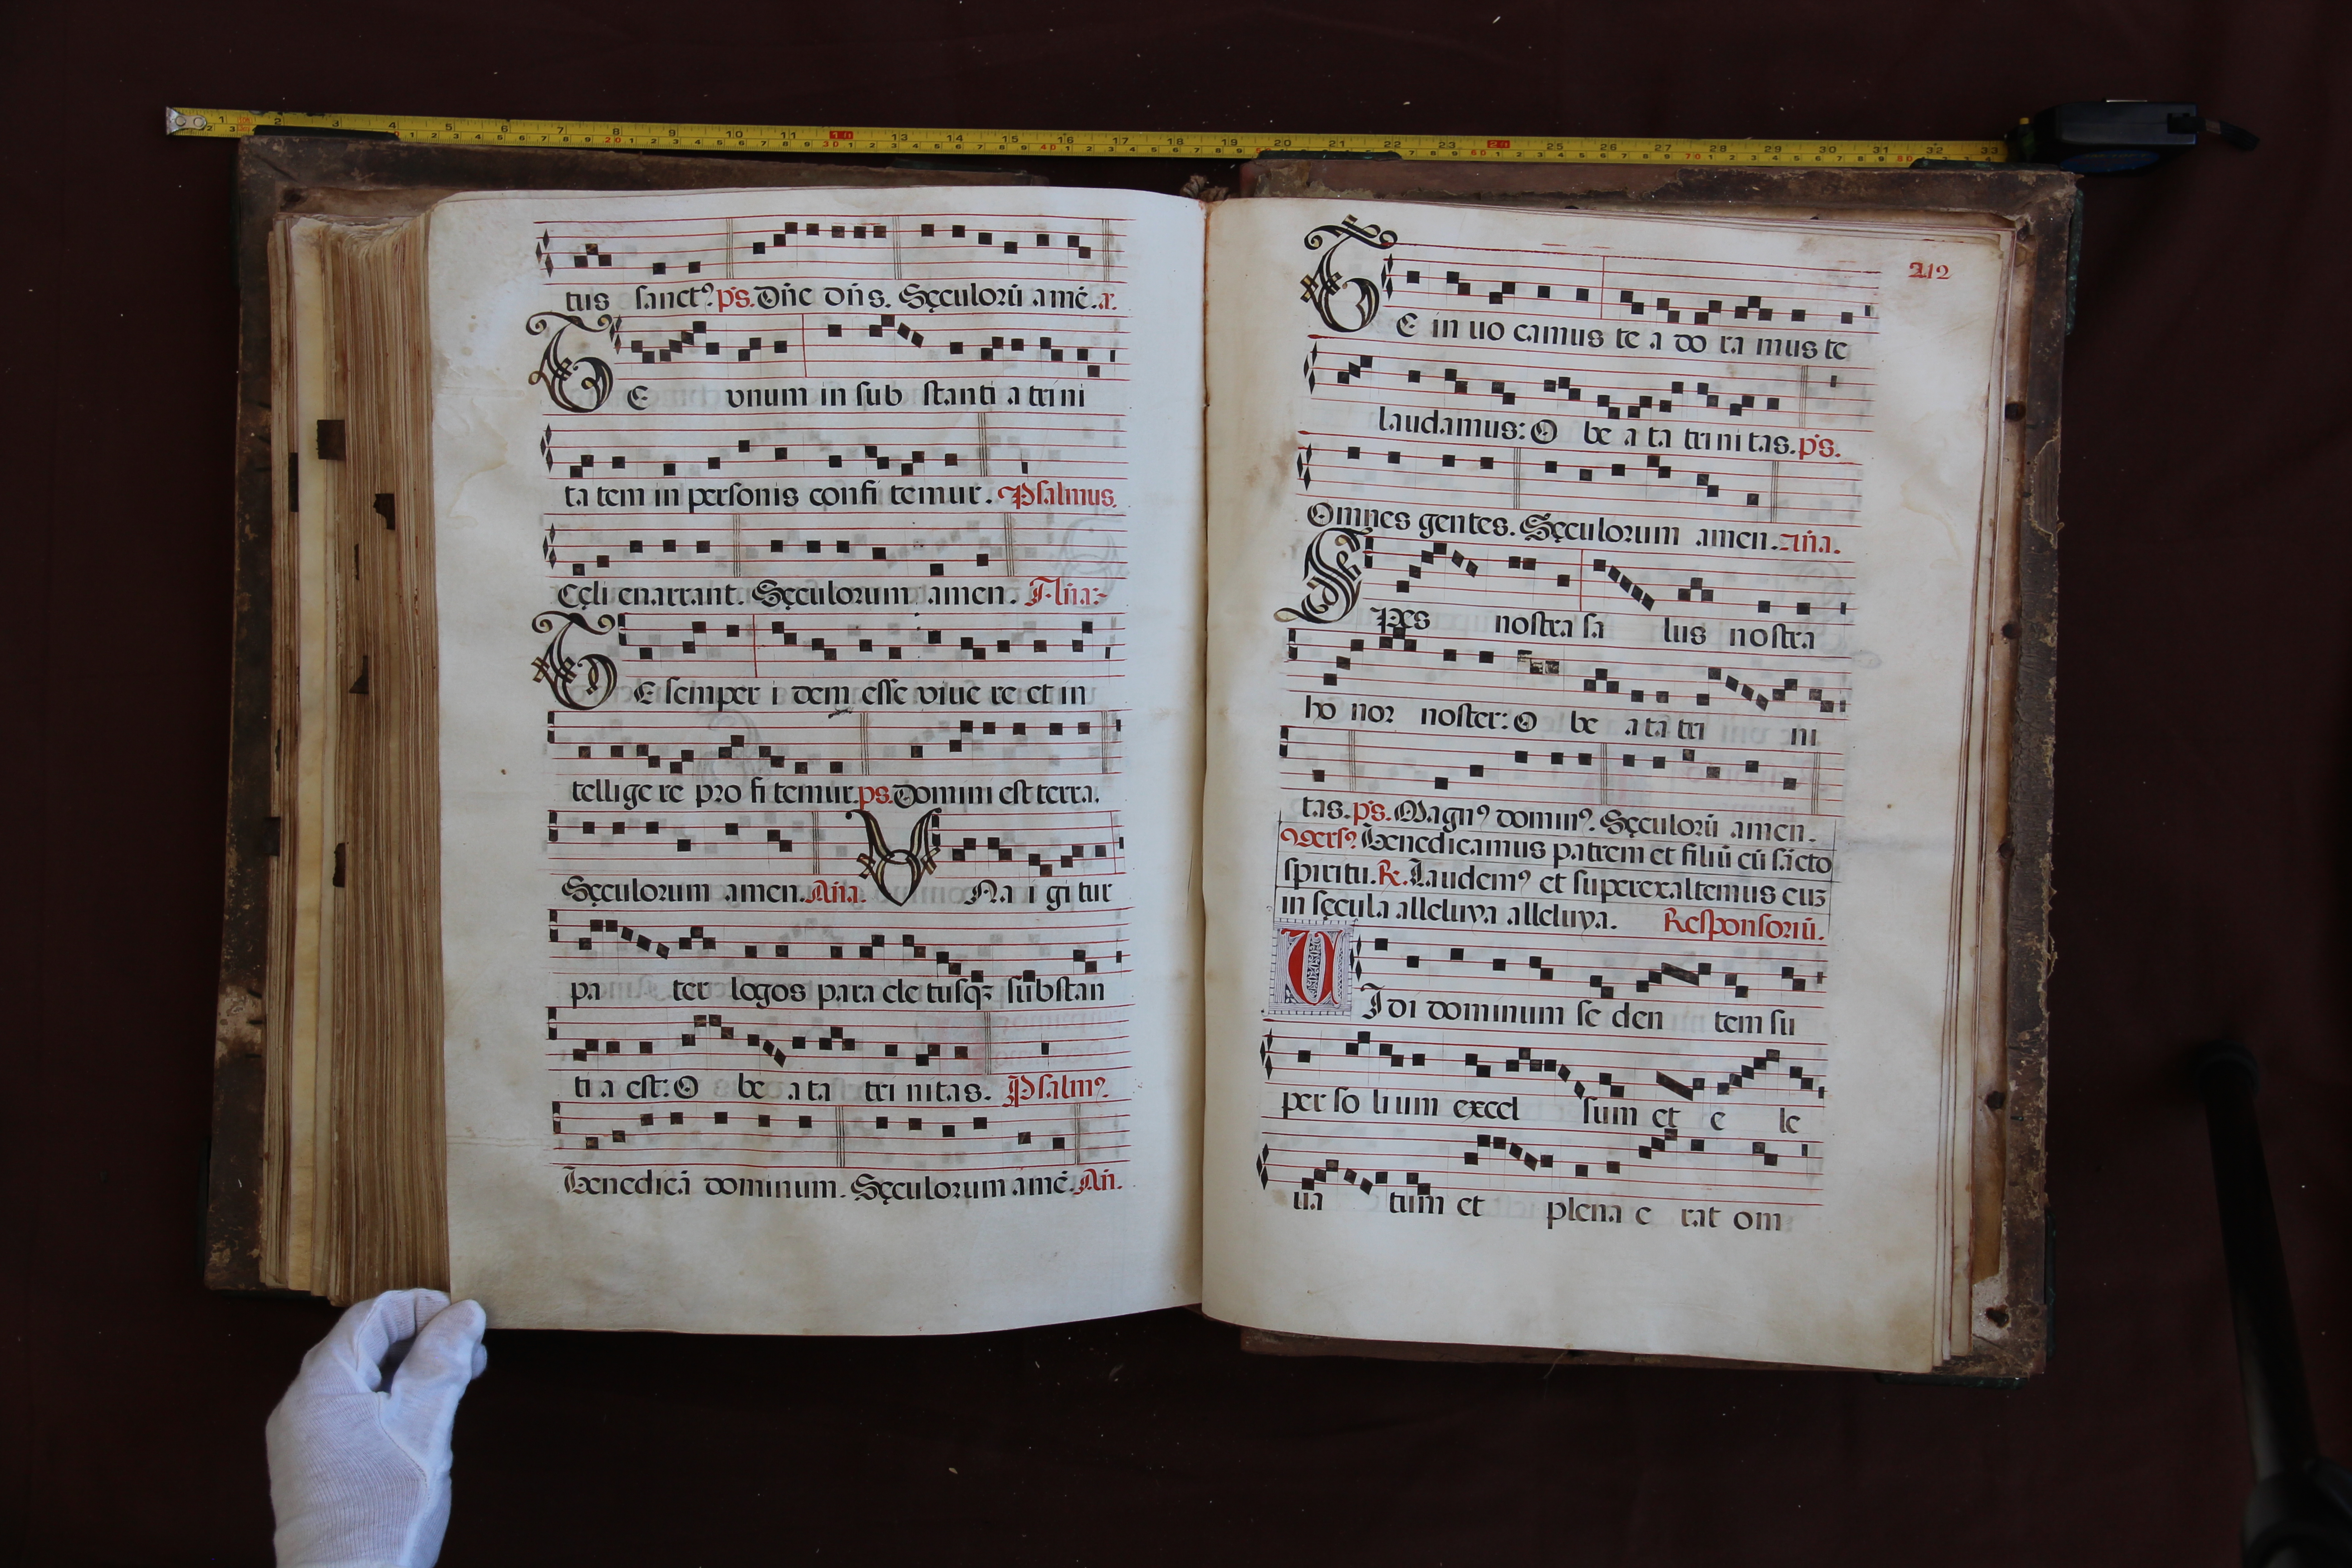 tus sanctꝰ ps. Dn̄e dn̄s. Sęculorū amē. a.
TE vnum in sub stanti a trini
ta tem in personis confi temur. Psalmus.
Cęli enarrant. Sęculorum amen. An̄a.
TE semper i dem esse viue re et in
tellige re pro fi temur. ps. Domini est terra.
Sęculorum amen. An̄a. VNa i gi tur
pa ter logos para cle tusqꝫ substan
ti a est: O be a ta tri nitas. Psalmꝰ
Benedicā dominum. Sęculorum amē. An̄.
212
TE in uo camus te a do ra mus te
laudamus: O be a ta tri ni tas. ps.
Omnes gentes. Sęculorum amen. An̄a.
SPes nostra sa lus nostra
ho nor noster: O be a ta tri ni
tas. ps. Magnꝰ dominꝰ. Sęculorū amen.
Versꝰ Benedicamus patrem et filiū cū sācto
spiritu. R. Laudemꝰ et superexaltemus euꝫ
in sęcula alleluya alleluya. Responsoriū.
VIdi dominum se den tem su
per so li um excel sum et e le
ua tum et plena e rat om